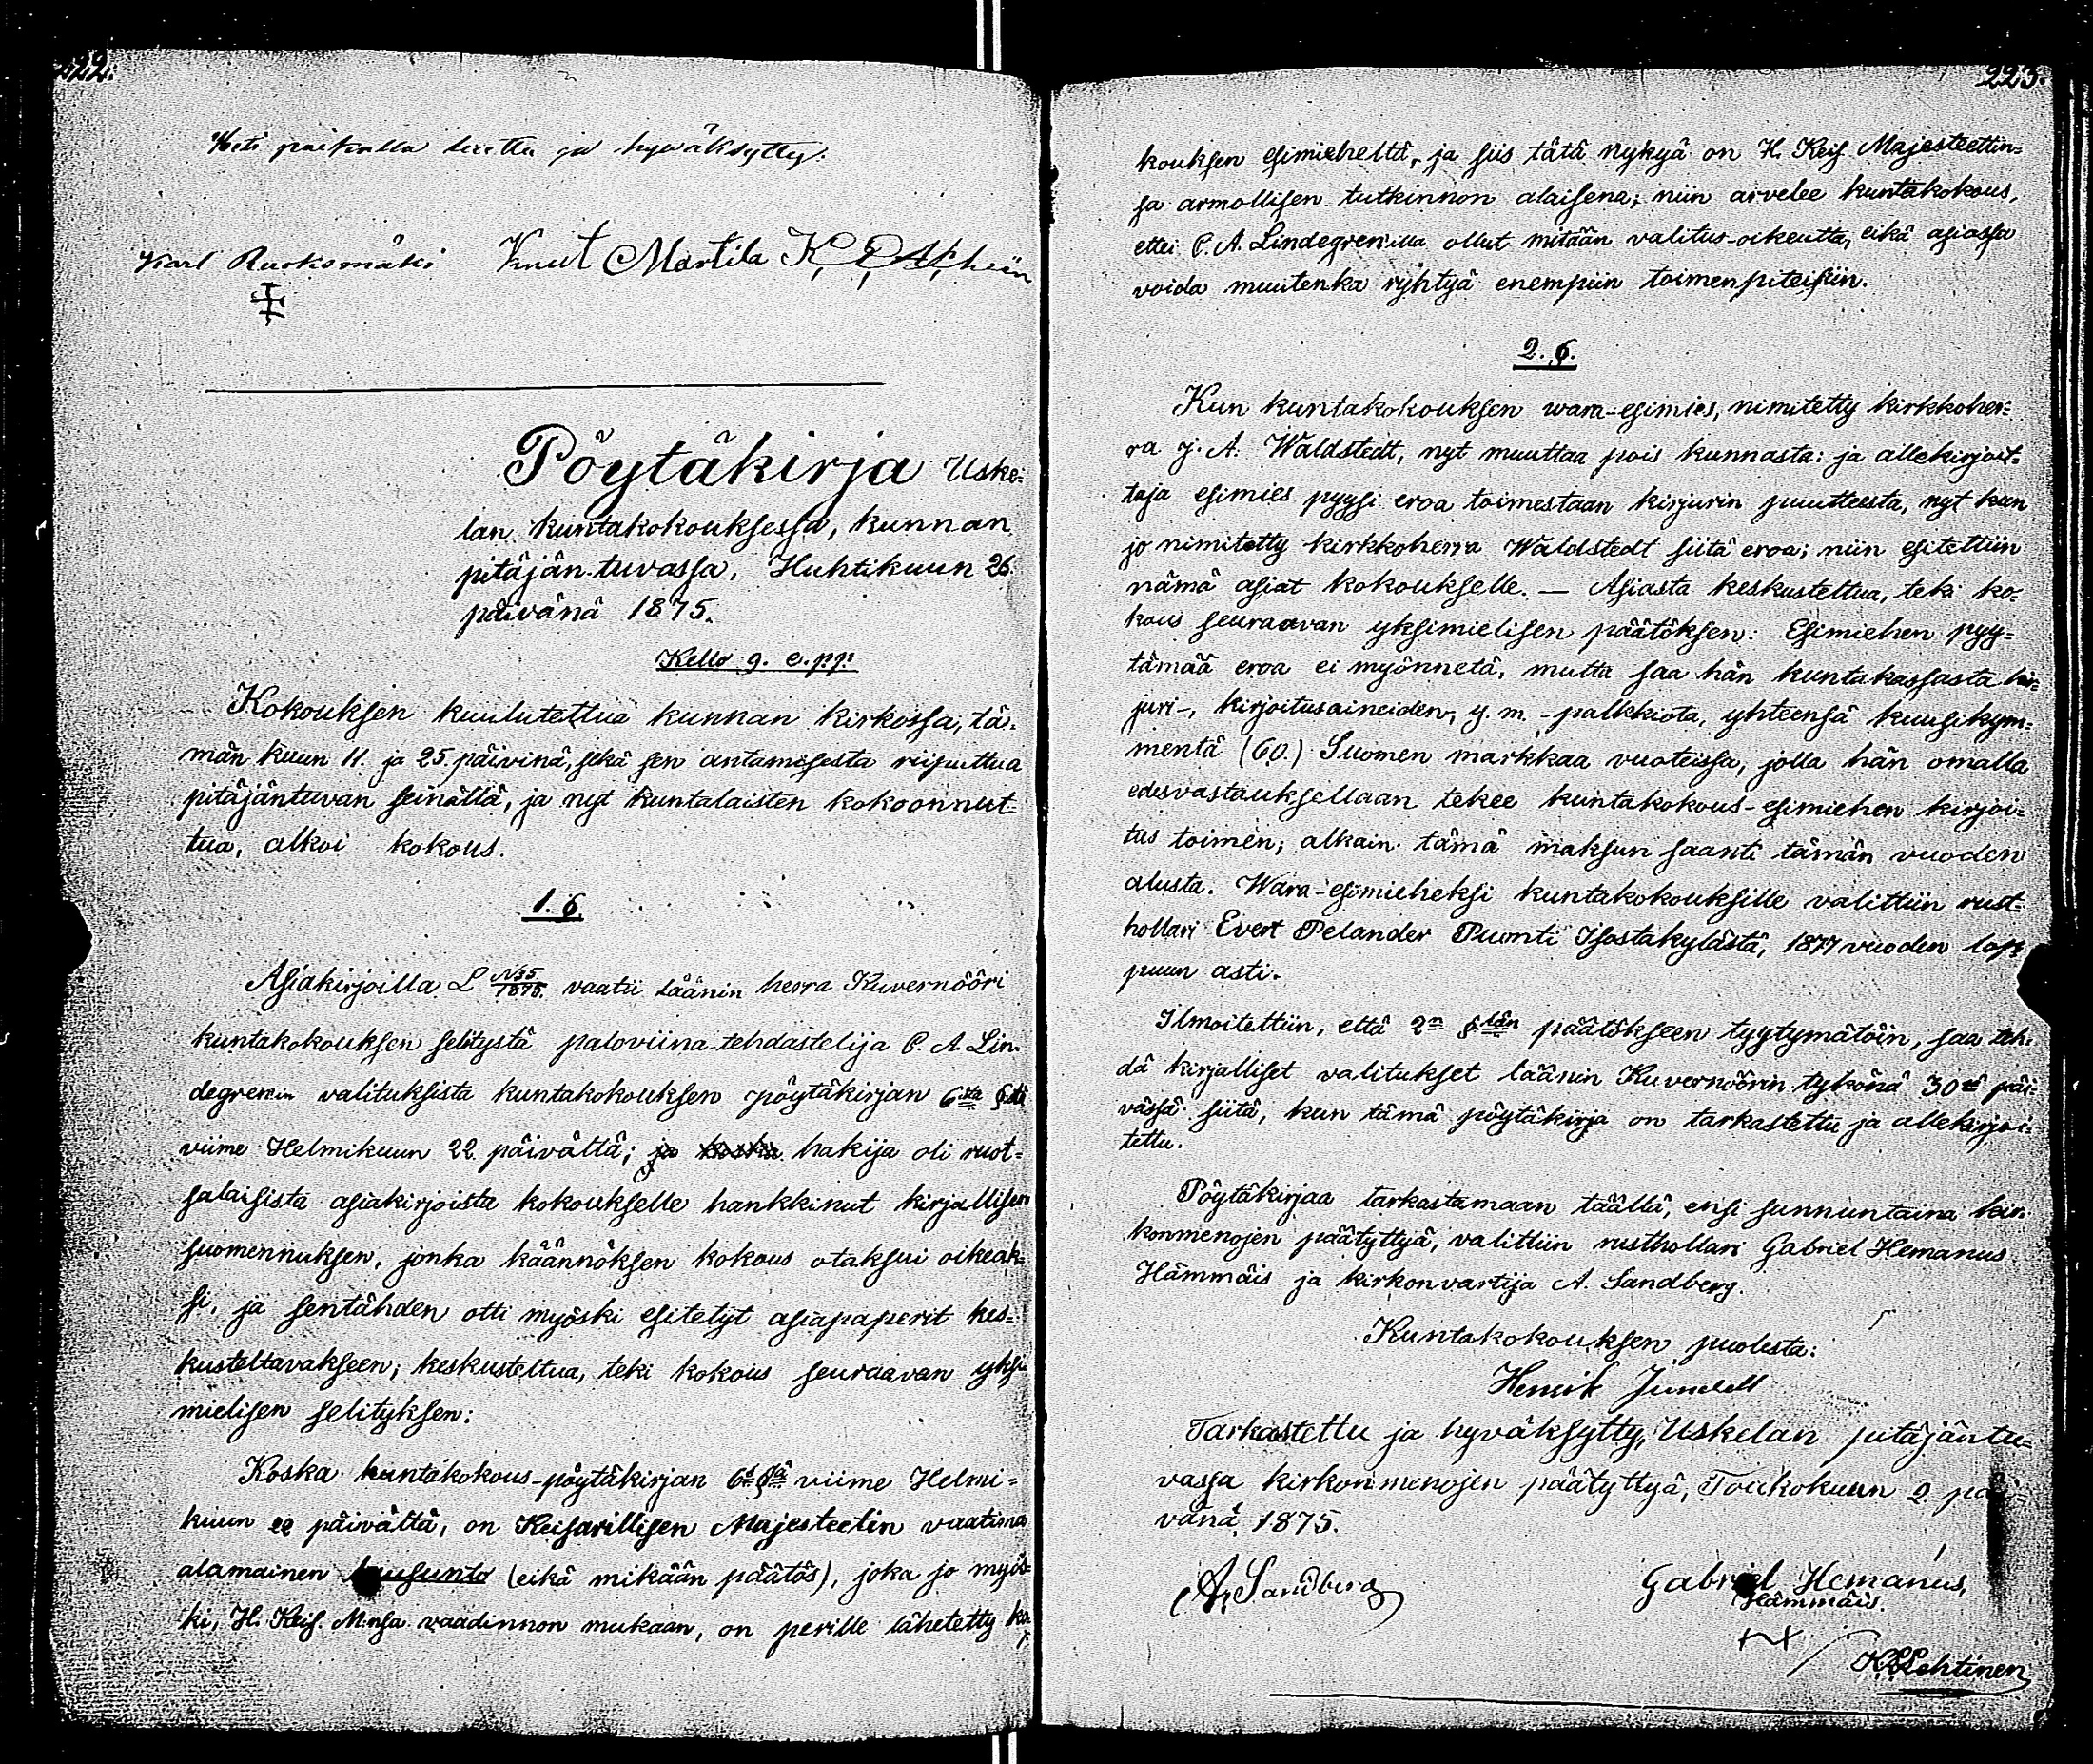 222.
Heti paikalla luettu ja hywäksytty:
Karl Ruokomäki Knut Martila
Pöytäkirja Uske-
lan kuntakokouksessa, kunnan
pitäjän-tuvassa, Huhtikuun 26.
päivänä 1875.
Kello 9. e.pp.
Kokouksen kuulutettua kunnan kirkossa, tä-
män kuun 11. ja 25. päivinä, sekä sen antamisesta riipuittua
pitäjäntuvan seinällä, ja nyt kuntalaisten kokoonnut-
tua, alkoi kokous.
1. §.
Asiakirjoilla L N 35/1875. vaatii läänin herra Kuvernööri
kuntakokouksen selitystä paloviina-tehdastelija C. A. Lin-
degrenin valituksista kuntakokouksen pöytäkirjan 6:sta §:stä
viime Helmikuun 22 päivältä; ja koska hakija oli ruot-
salaisista asiakirjoista kokoukselle hankkinut kirjallisen
suomennuksen, jonka käännöksen kokous otaksui oikeak-
si, ja sentähden otti myöski esitetyt asiapaperit kes-
kusteltavakseen; keskusteltua, teki kokous seuraavan yksi-
mielisen selityksen:
Koska kuntakokous-pöytäkirjan 6:s §:ä viime Helmi-
kuun 22 päivältä, on Keisarillisen Majesteetin vaatima
alamainen lausunto (eikä mikään päätös), joka jo myös-
ki, H. Keis. M:nsa vaadinnon mukaan, on perille lähetetty ko-
223.
kouksen esimieheltä, ja siis tätä nykyä on H. Keis. Majesteettin-
sa armollisen tutkinnon alaisena; niin arvelee kuntakokous,
ettei C. A. Lindegrenilla ollut mitään valitus-oikeutta, eikä asiassa
voida muutenka ryhtyä enempiin toimenpiteisiin.
2. §.
Kun kuntakokouksen wara-esimies, nimitetty kirkkoher-
ra J. A. Waldstedt, nyt muuttaa pois kunnasta: ja allekirjoit-
taja esimies pyysi eroa toimestaan kirjurin puutteesta, nyt kun
jo nimitetty kirkkoherra Waldstedt siitä eroa; niin esitettiin
nämä asiat kokoukselle. — Asiasta keskusteltua, teki ko-
kous seuraavan yksimielisen päätöksen: Esimiehen pyy-
tämää eroa ei myönnetä, mutta saa hän kuntakassasta kir-
juri-, kirjoitusaineiden-, y. m. -palkkiota, yhteensä kuusikym-
mentä (60.) Suomen markkaa vuoteissa, jolla hän omalla
edesvastauksellaan tekee kuntakokous-esimiehen kirjoi-
tus toimen; alkain tämä maksun saanti tämän vuoden
alusta. Wara-esimieheksi kuntakokouksille valittiin rust-
hollari Evert Pelander Puonti Isostakylästä, 1877 vuoden lop-
puun asti.
Ilmoitettiin, että 2:n §:län päätökseen tyytymätöin, saa teh-
dä kirjalliset valitukset läänin Kuvernöörin tykönä 30:ä päi-
vässä siitä, kun tämä pöytäkirja on tarkastettu ja allekirjoi-
tettu.
Pöytäkirjaa tarkastamaan täällä, ensi sunnuntaina kir-
konmenojen päätyttyä, valittiin rusthollari Gabriel Hemanus
Hämmäis ja kirkonvartija A. Sandberg.
Kuntakokouksen puolesta:
Henrik Jundell
Tarkastettu ja hyväksytty, Uskelan pitäjäntu-
vassa kirkonmenojen päätyttyä, Toukokuun 2 päi-
vänä 1875.
A. Sandberg Gabriel Hemanus,
Hämmäis.
K. E. Lehtinen